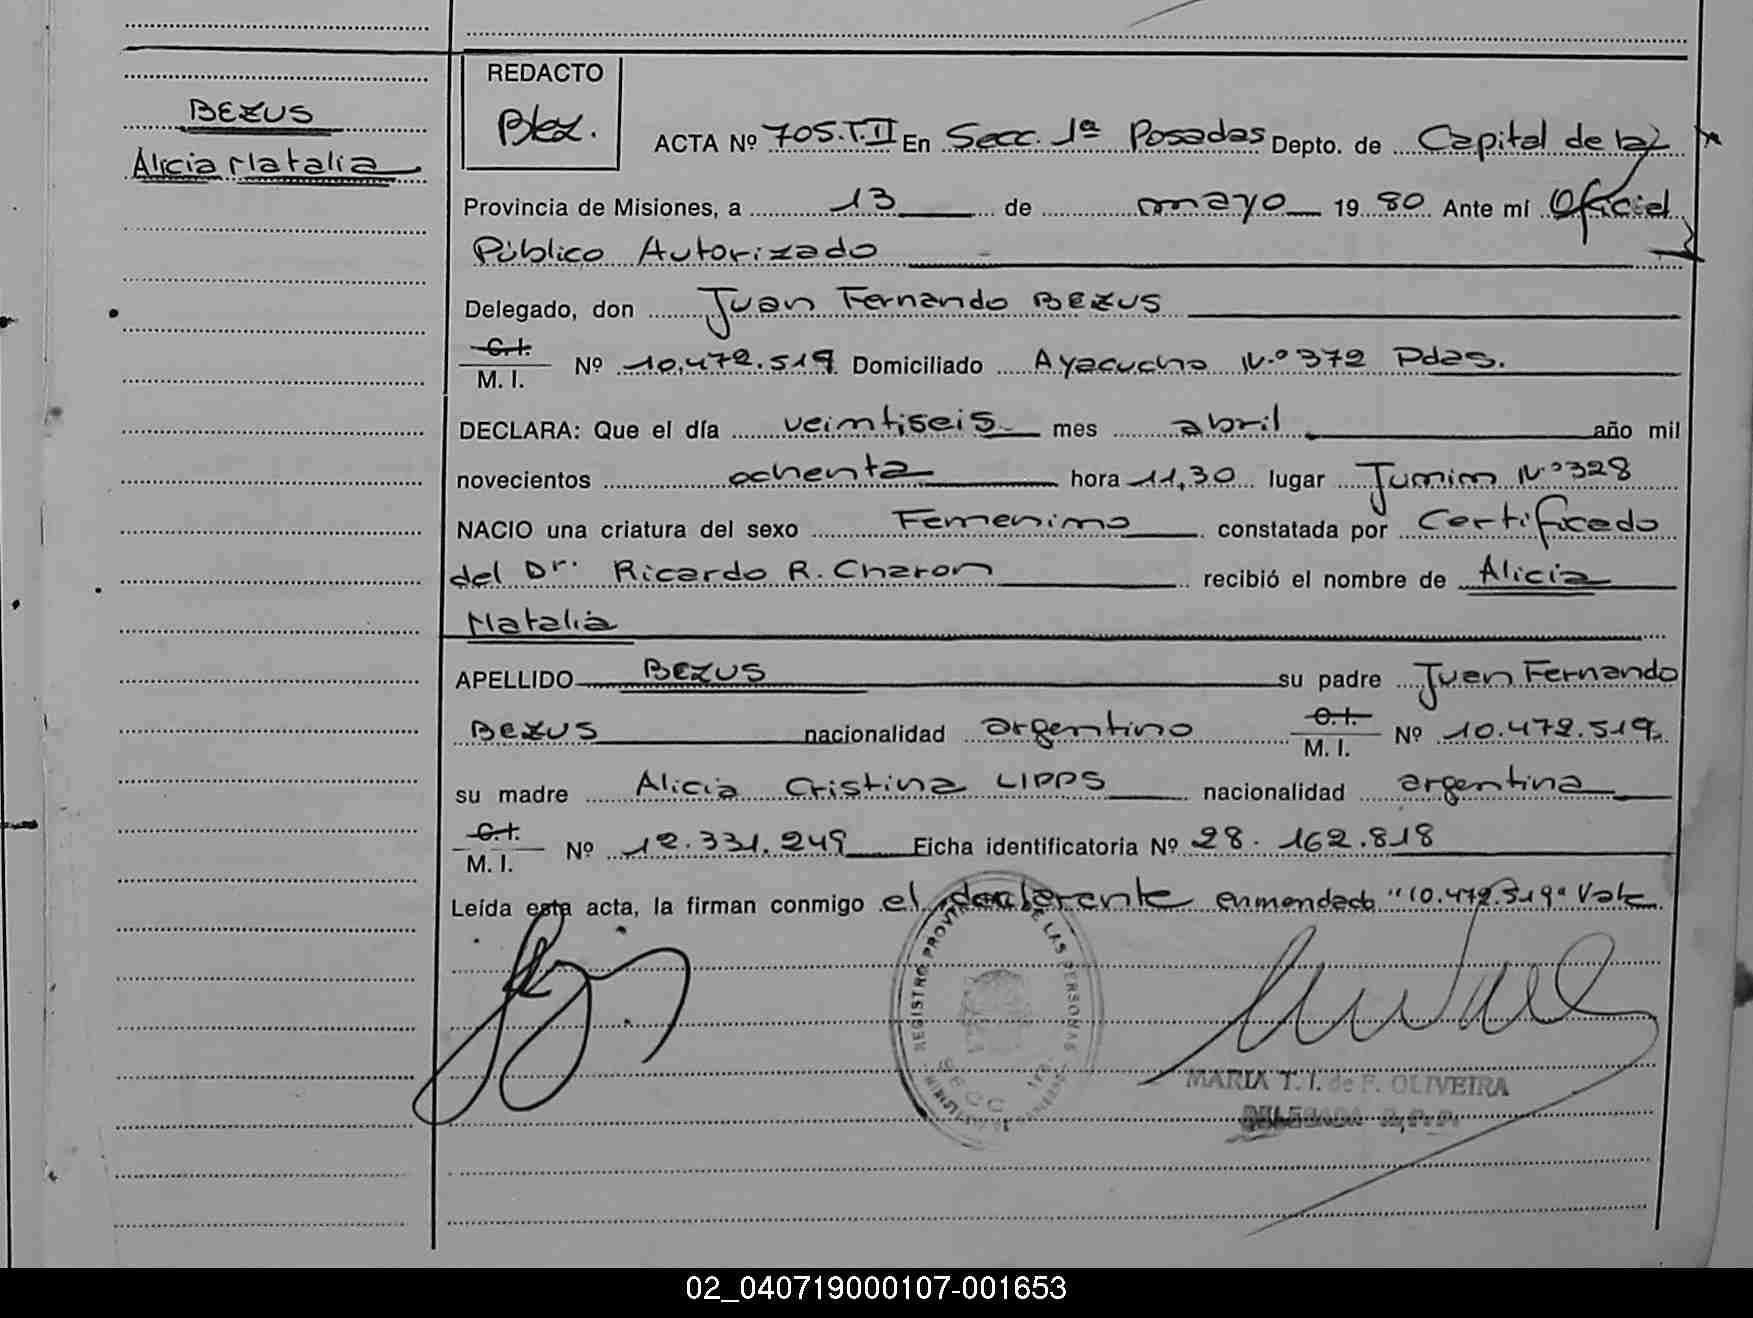 BEZUS
Alicia Natalia
REDACTO
Blez.
ACTA Nº 705.T.II En Secc. 1ª Posadas Depto. de Capital de la
Provincia de Misiones, a 13 de mayo 1980 Ante mí Oficial
Público Autorizado
Delegado, don Juan Fernando BEZUS
C.I.
M. I. Nº 10.472.519 Domiciliado Ayacucho N.º 372 Pdas.
DECLARA: Que el día veintiseis mes abril año mil
novecientos ochenta hora 11,30 lugar Junin Nº 328
NACIO una criatura del sexo Femenino constatada por Certificado
del Dr. Ricardo R. Charon recibió el nombre de Alicia
Natalia
APELLIDO BEZUS su padre Juan Fernando
BEZUS nacionalidad argentino C.I. M. I. Nº 10.472.519
su madre Alicia Cristina LIPPS nacionalidad argentina
C.I.
M. I. Nº 12.331.249 Ficha identificatoria Nº 28.162.818
Leída esta acta, la firman conmigo el declarante enmendado "10.472.519" Vale
REGISTRO PROV. DE LAS PERSONAS
SECC. 1ra.
MARIA T. I. de F. OLIVEIRA
DELEGADA R. P. P.
02_040719000107-001653